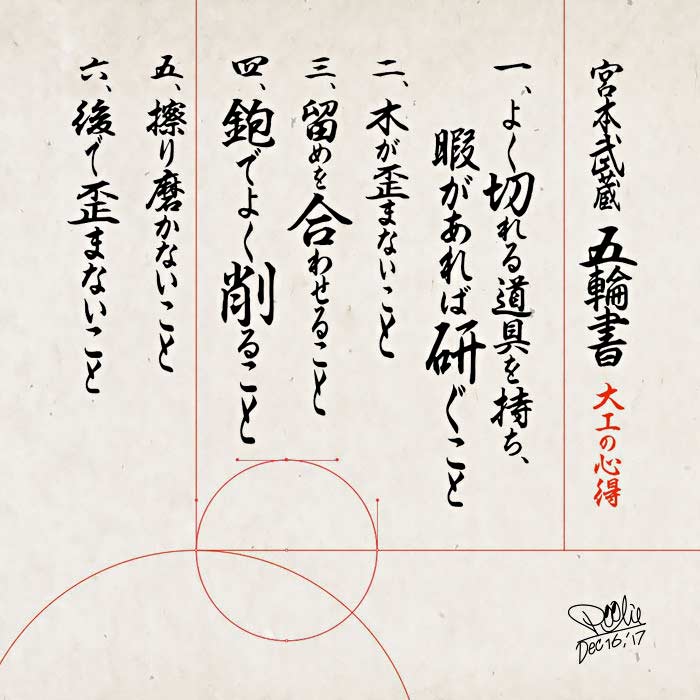 宮本武蔵 五輪書 大工の心得
一、よく切れる道具を持ち、
暇があれば研ぐこと
二、木が歪まないこと
三、留めを合わせること
四、鉋でよく削ること
五、擦り磨かないこと
六、後で歪まないこと
Dec 16, '17